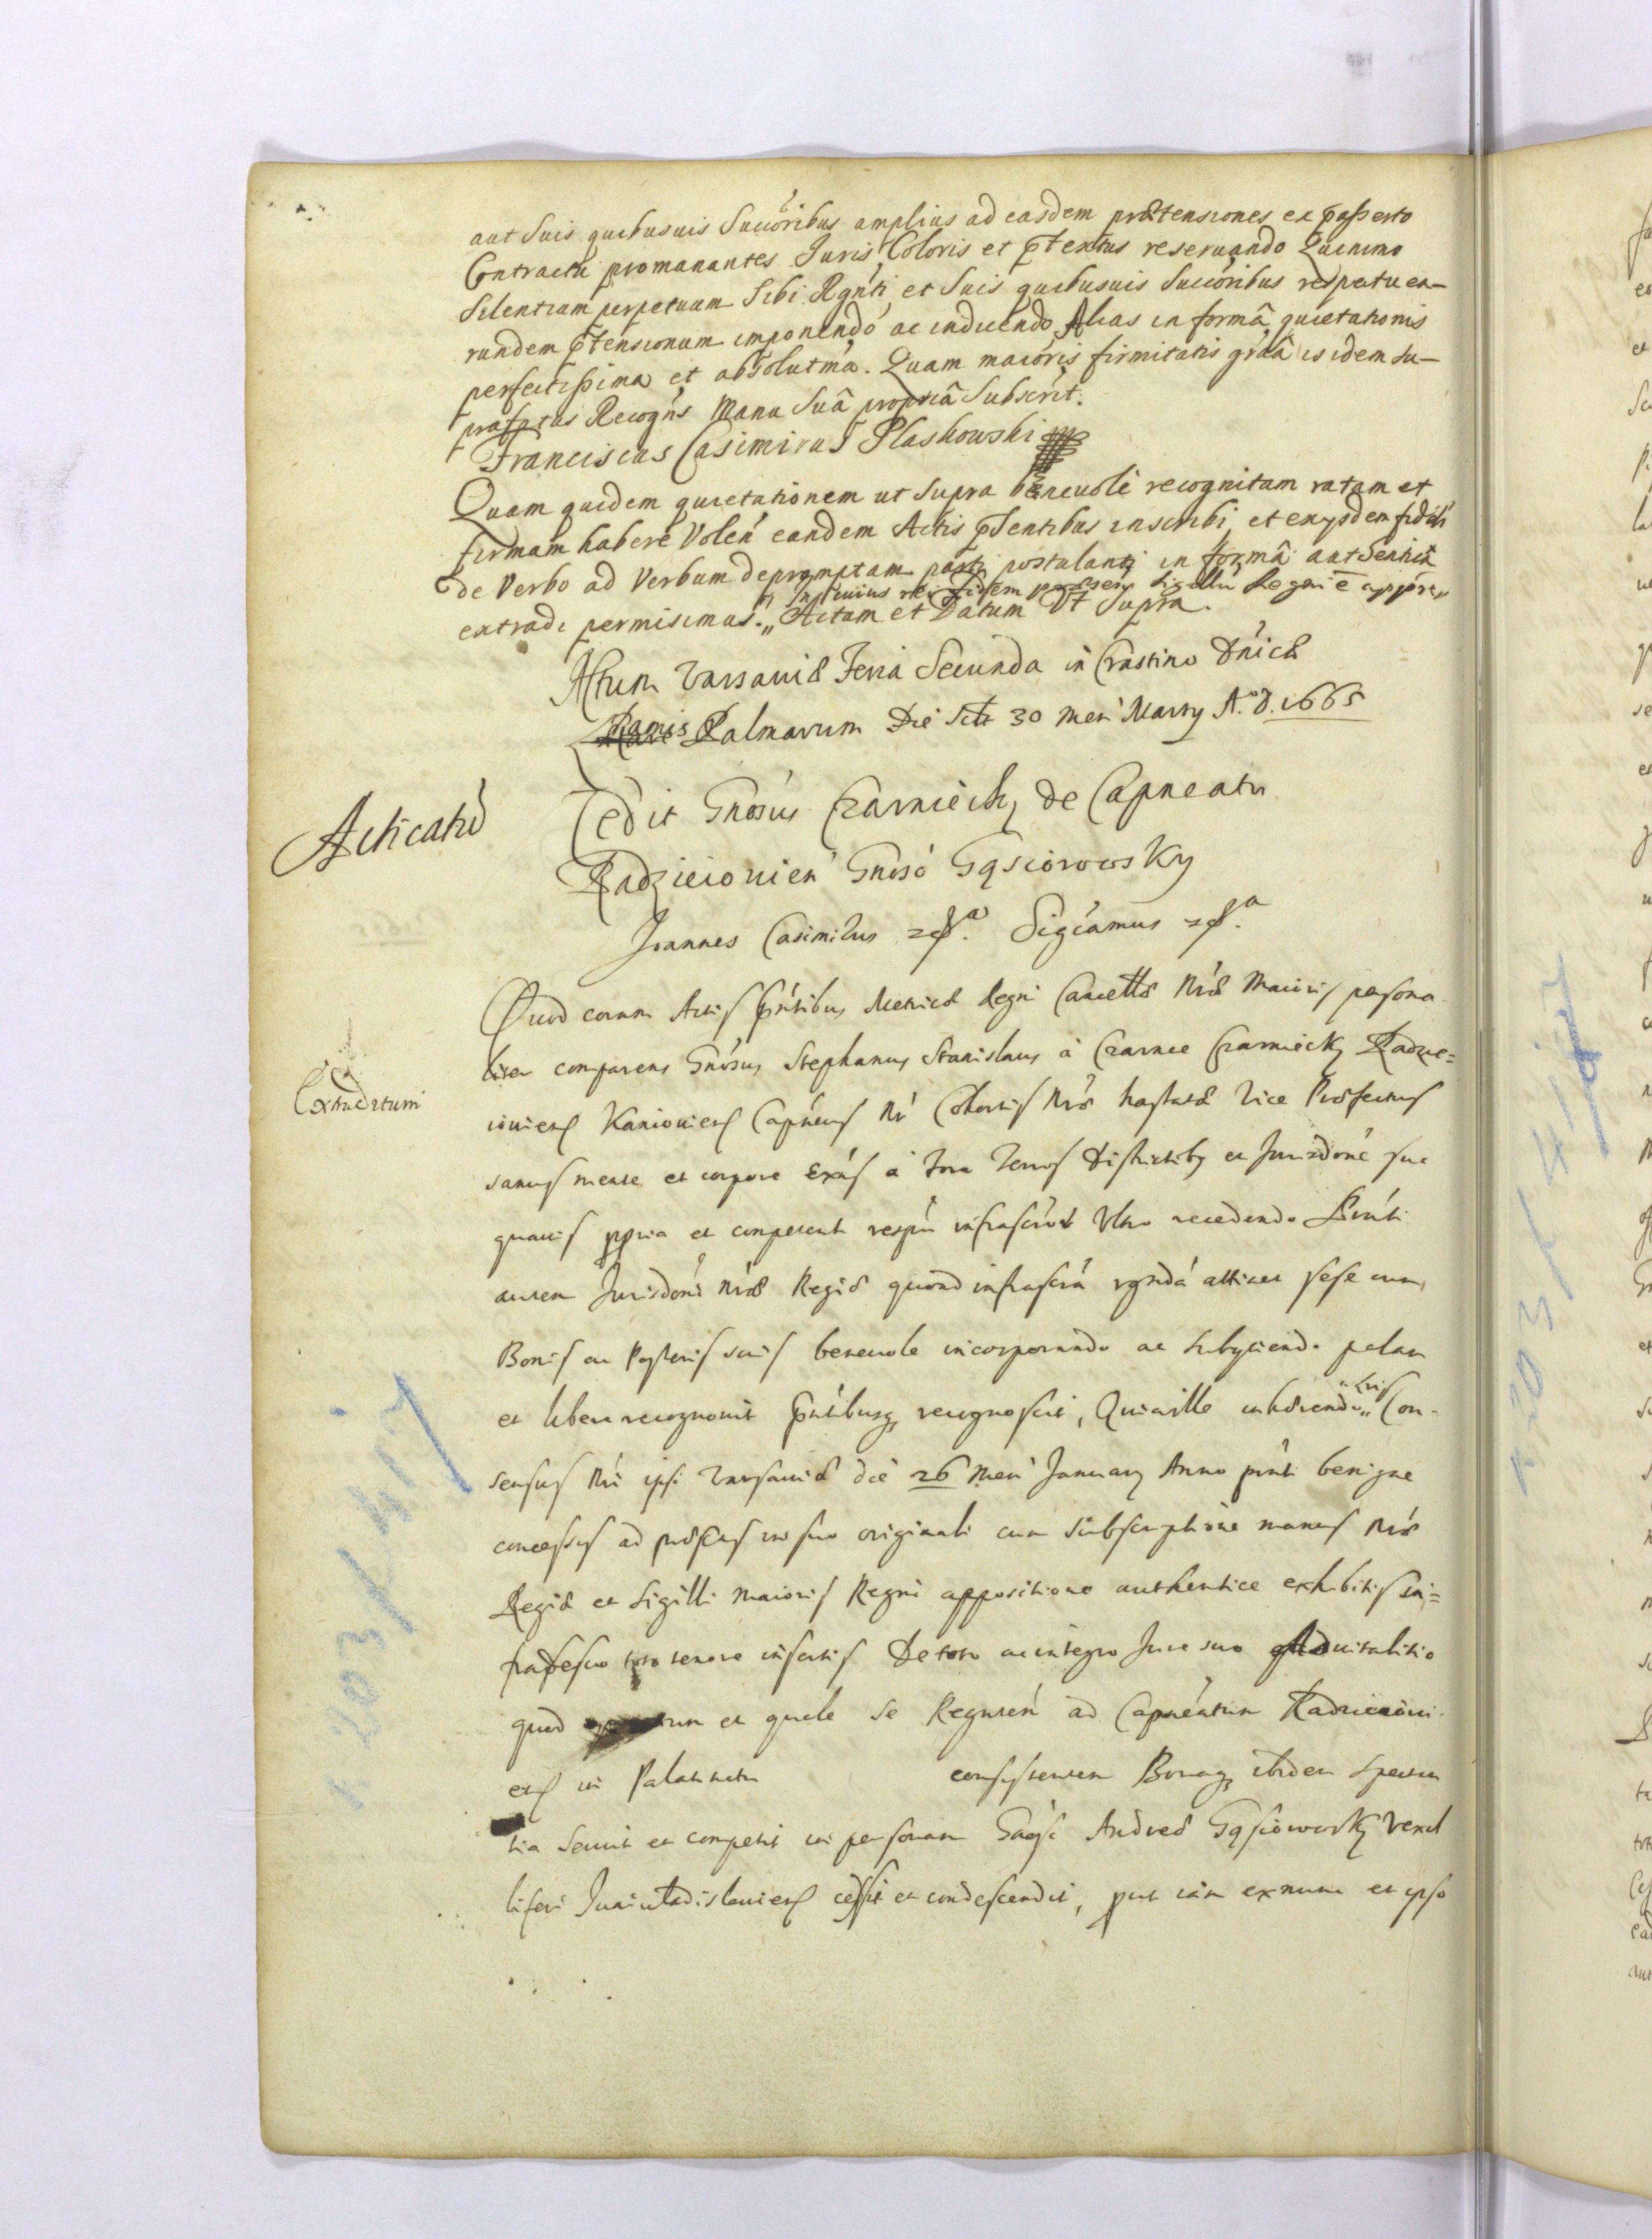 aut Suis quibusuis Succoribus amplius ad easdem prætensiones ex passerto
Contractu promanantes Juris, Coloris et ptextus reseruando Quinimo
Silentium perpetuum Sibi Rgnti et Suis quibusuis Succoribus respectu ea-
rundem ptensionum imponendo ac inducendo Alias in formâ quietationis
perfectissima et absolutma. Quam maioris firmitatis grâ is idem su-
prafatus Recogns Manu Suâ propriâ Subscrit.
Franciscus Casimirus Plaskowski
Quam quidem quietationem ut supra beneuolè recognitam ratam et
firmam habere Volen eandem Actis psentibus inscribi, et ex ysdem fideli
de Verbo ad Verbum depromptam parti postulanti in formâ authentica
In cuius rei fidem præsen Sigillu Regni e appres„
extradi permisimus. „ Actum et Datum Vt Supra.
Actum Varsauiæ Feria Secunda in Crastino Dnicæ
Ramis Palmarum Die scilt 30 Men Marty A. D. 1665
Acticatio
Cedit Gnosus Czarniecky de Capneatu
Radzieiouien Gnoso Gąsiorowsky
Joannes Casimirus Sigcamus
Quod coram Actis pntibus Metricæ Regni Cancellæ Nræ Maioris persona
liter comparens Gnosus Stephanus Stanislaus à Czarnce Czarniecky Radzie=
Extraditum
iouien Kaniouien Capneus Nr Cohortis Nræ hastatæ Vice Præfectus
sanus mente et corpore Exns à Foro Terris Districtibq et Jurisdone sua
quauis ppria et competenti respu infrascror Vltro recedendo Pnti
autem Jurisdoni Nræ Regiæ quoad infrascra rgnda attinet sese cum
Bonis ac Posteris suis beneuole incorporando ac subyciendo palam
et libere recognouit pntibusq recognoscit, Quia ille inhærendo Con-
sensus Nri ipsi Varsauiæ die 26 Men January Anno pnti benigne
concessus ad præsens in suo originali cum Subscriptione manus Nræ
Regiæ et Sigilli maioris Regni appositione authentice exhibitis in=
toto tenore insertis De toto ac integro Jure suo aduitalitio
quod et quale se Regnren ad Capneatum Radzieioui-
en in Palatinatu consystentem Bonaq ibidem spectan
tia seruit et competit in personam Gnosi Andreæ Gąsiorowsky Vexil
liferi Juniuladislauien cessit et condescendit, put iam ex nunc et ipso